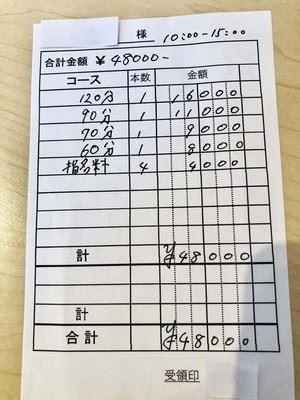 様 10:00-15:00
合計金額 ¥48000-
コース 本数 金額
120分 1 16000
90分 1 11000
70分 1 9000
60分 1 8000
指名料 4 4000
計 ¥48000
計
合計 ¥48000
受領印